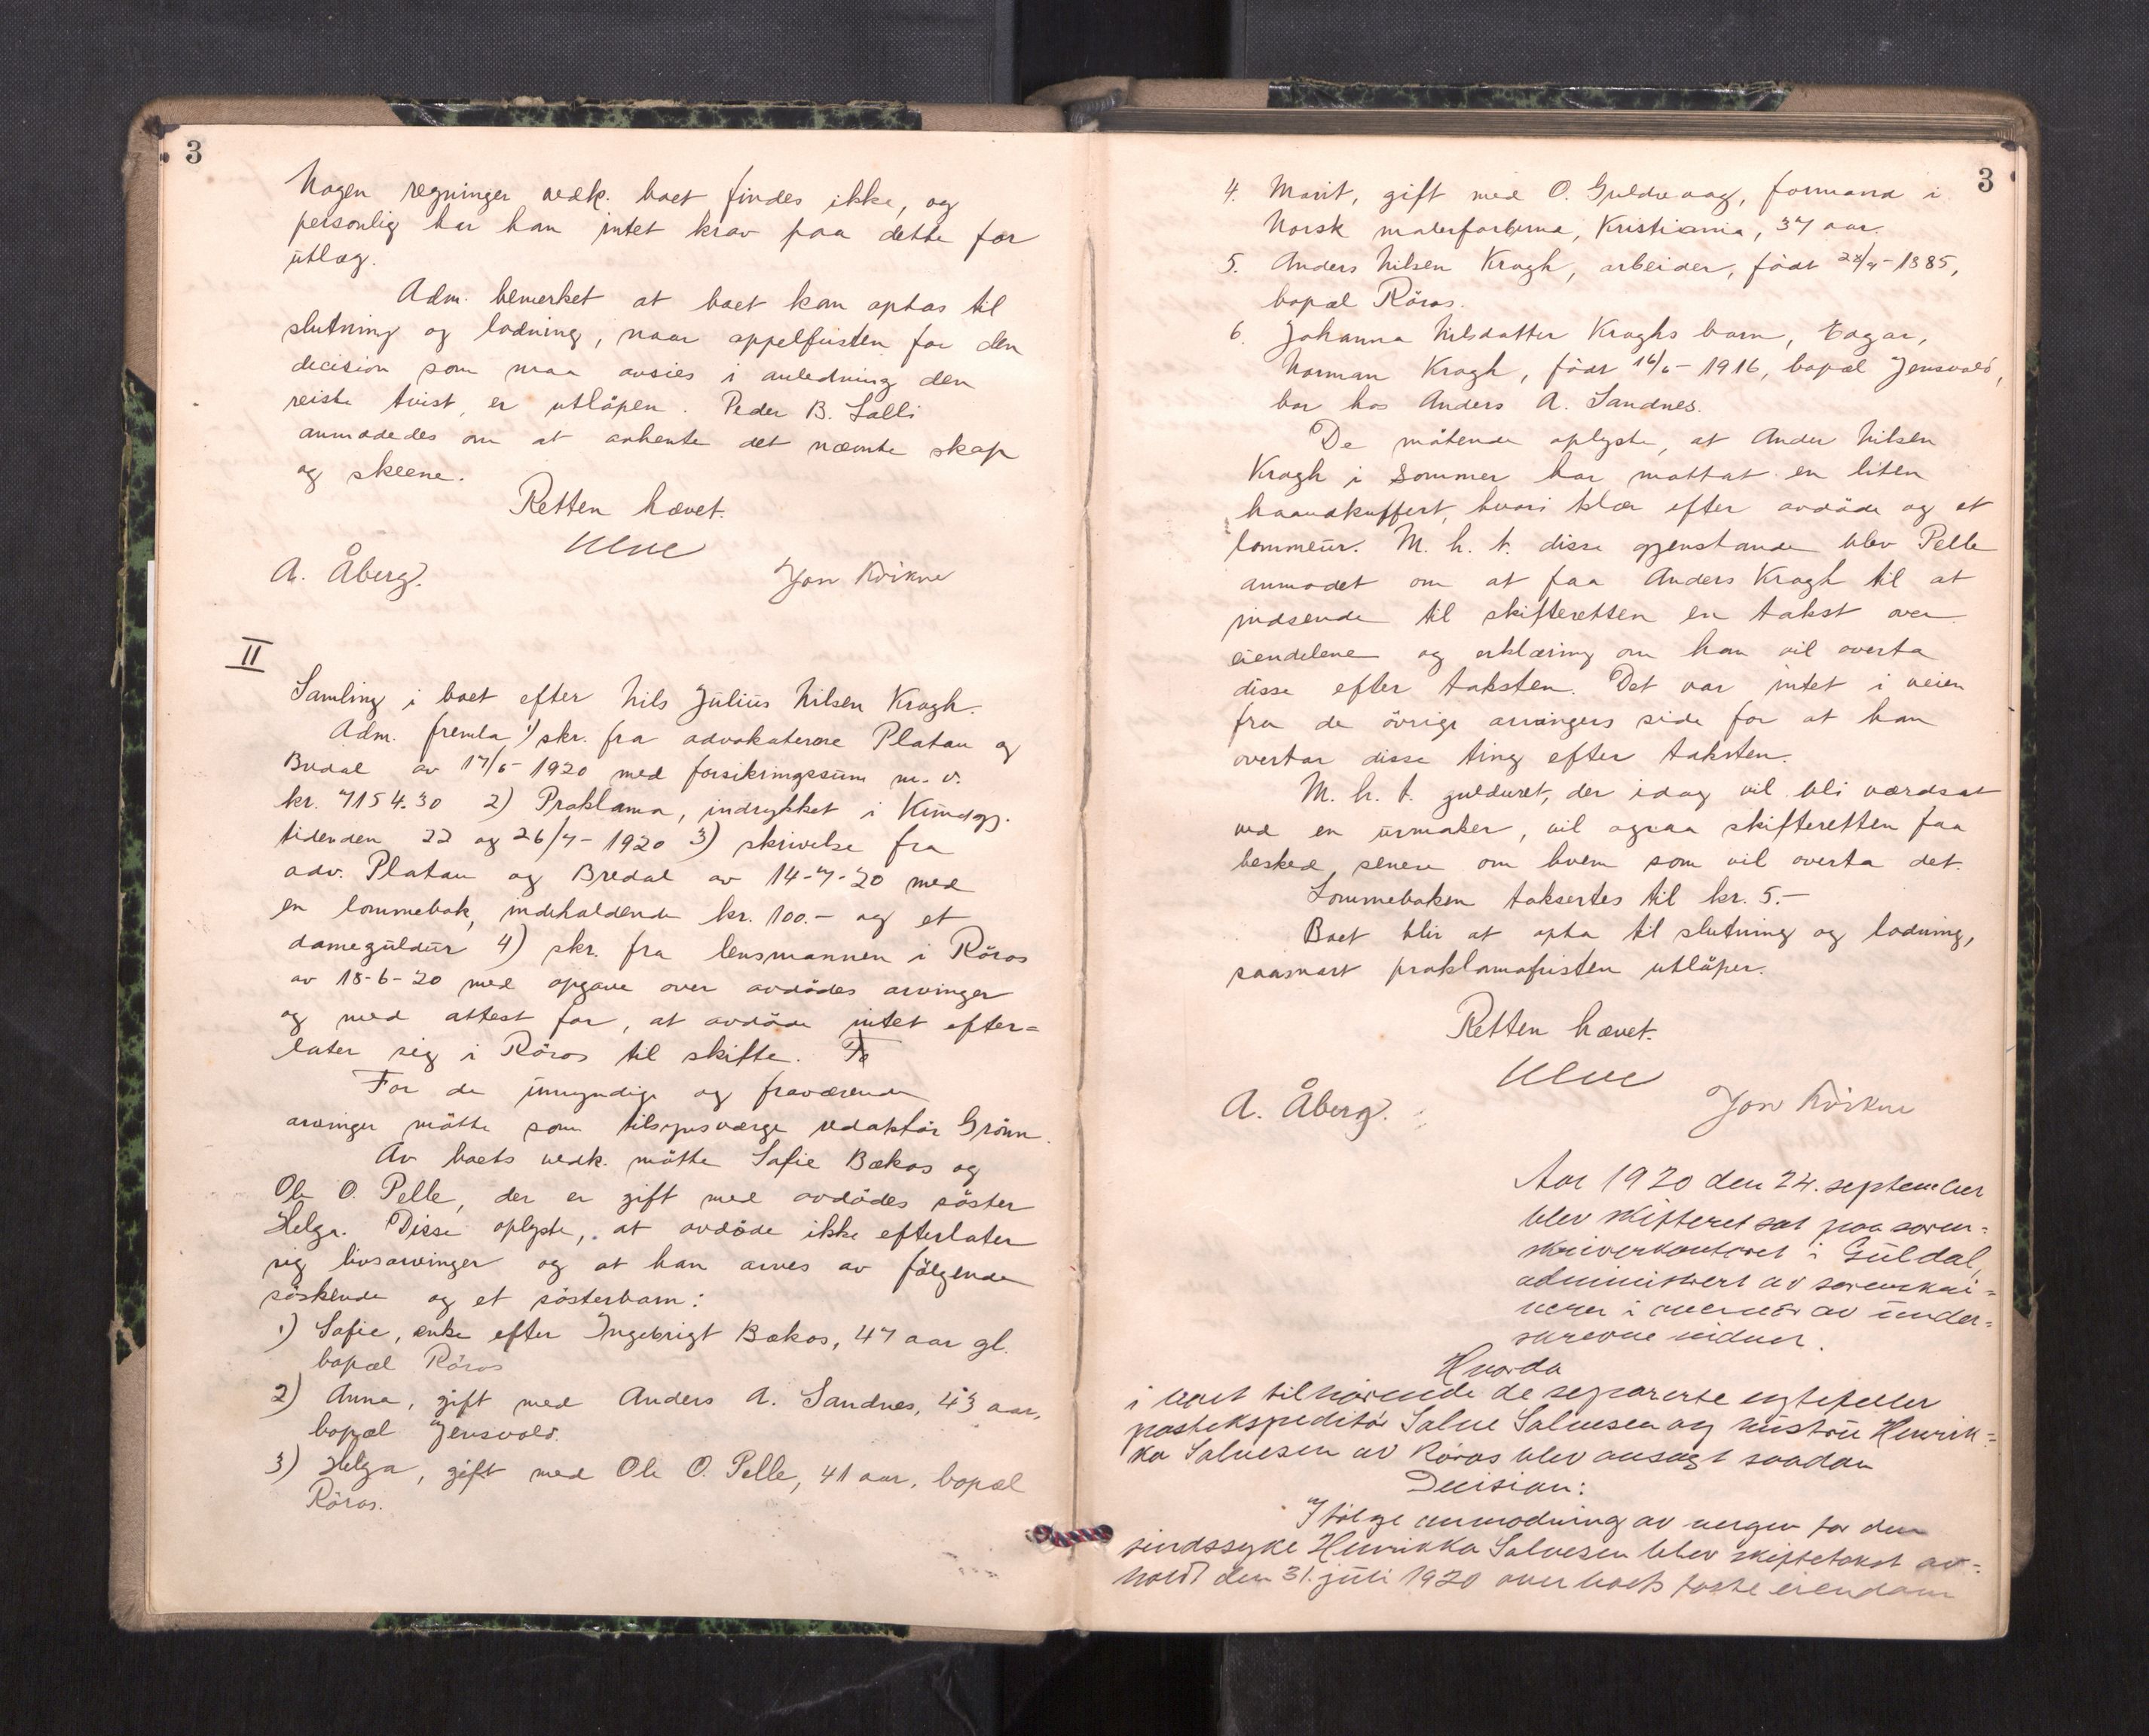 3
Nogen regninger vedk. boet findes ikke, og
personlig har han intet krav paa dette for
utlæg.
Adm. bemerket at boet kan optas til
slutning og lodning, naar appelfristen for den
decision som maa avsies i anledning den
reiste tvist, er utløpen. Peder B. Galli
anmodedes om at avhente det nævnte skap
og skeene.
Retten hævet.
A. Åberg. Jon Kvikne
II
Samling i boet efter Nils Julius Nilsen Kragh.
Adm. fremla 1) skr. fra advokaterne Platou og
Bredal av 17/6-1920 med forsikringssum m. v.
kr. 7154.30 2) Proklama, indrykket i Kundgj.
tidenden 22 og 26/7-1920 3) skrivelse fra
adv. Platou og Bredal av 14-7-20 med
en lommebok, indeholdende kr. 100.- og et
dameguldur 4) skr. fra lensmannen i Röros
av 18-6-20 med opgave over avdødes arvinger
og med attest for, at avdøde intet efter=
later sig i Röros til skifte.
For de umyndige og fraværende
arvinger møtte som tilsynsværge redaktör Grønn.
Av boets vedk. møtte Sofie Bækos og
Ole O. Pelle, der er gift med avdødes søster
Helga. Disse oplyste, at avdøde ikke efterlater
sig livsarvinger og at han arves av følgende
søskende og et søsterbarn:
1) Sofie, enke efter Ingebrigt Bækos, 47 aar gl.
bopæl Röros
2) Anna, gift med Anders A. Sandnes, 43 aar,
bopæl Jensvold.
3) Helga, gift med Ole O. Pelle, 41 aar, bopæl
Röros.
3
4. Marit, gift med O. Guldvaag, formand i
Norsk malerfarberna, Kristiania, 37 aar.
5. Anders Nilsen Kragh, arbeider, født 28/4-1885,
bopæl Röros.
6. Johanna Nilsdatter Kraghs barn, Edgar,
Norman Kragh, født 16/6-1916, bopæl Jensvold,
bor hos Anders A. Sandnes.
De møtende oplyste, at Anders Nilsen
Kragh i sommer har mottat en liten
haandkuffert, hvori klær efter avdøde og et
lommeur. M. h. t. disse gjenstande blev Pelle
anmodet om at faa Anders Kragh til at
indsende til skifteretten en takst over
eiendelene og erklæring om han vil overta
disse efter taksten. Det var intet i veien
fra de øvrige arvingers side for at han
overtar disse ting efter taksten.
M. h. t. gulduret, der idag vil bli værdsat
ved en urmaker, vil ogsaa skifteretten faa
besked senere om hvem som vil overta det.
Lommeboken taksertes til kr. 5.-
Boet blir at opta til slutning og lodning,
saasnart proklamafristen utløper.
Retten hævet.
A. Åberg. Jon Kvikne
Aar 1920 den 24. september
blev skifteret sat paa soren=
skriverkontoret i Guldal,
administrert av sorenskri=
verer i overvær av under=
skrevne vidner.
Hvorda
i boet tilhørende de separerte egtefeller
postekspeditør Salve Salvesen og hustru Henrik=
ka Salvesen av Röros blev avsagt saadan
Decision:
Ifølge anmodning av vergen for den
sindssyke Henrikka Salvesen blev skiftetakst av=
holdt den 31. juli 1920 over boets faste eiendom